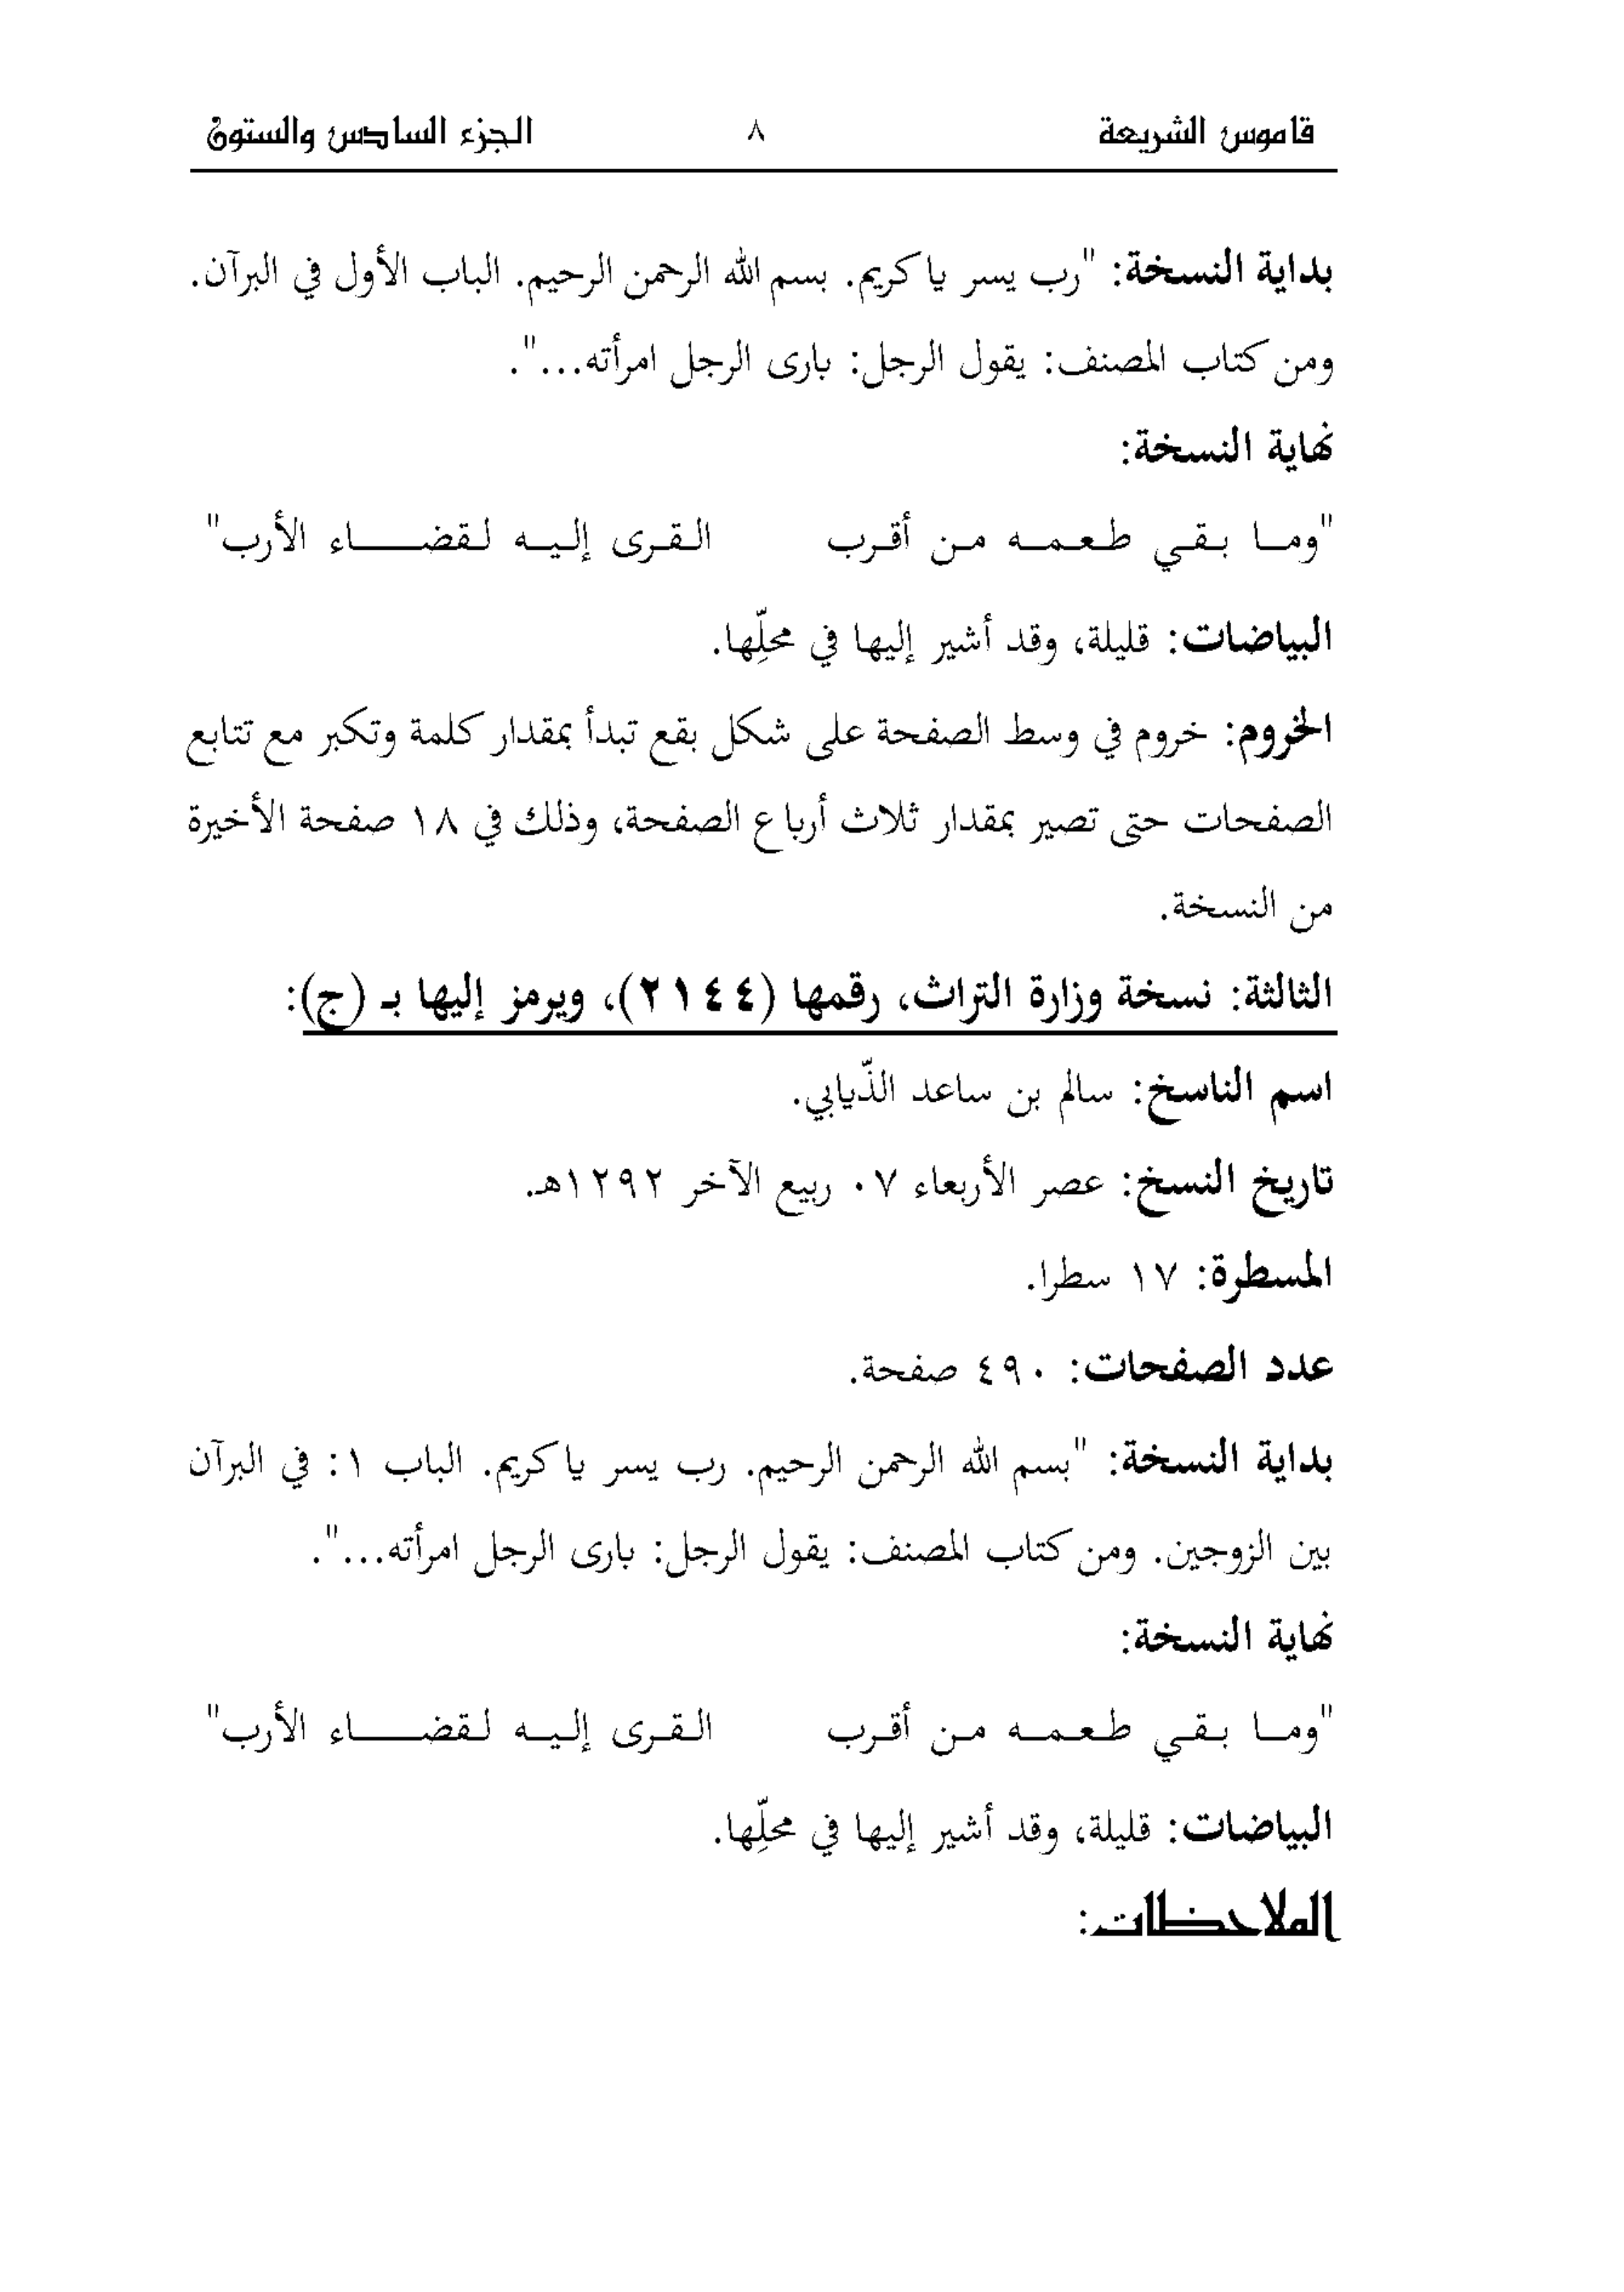 قاموس الشريعة ٨ الجزء السادس والستون
بداية النسخة: "رب يسر يا كريم. بسم الله الرحمن الرحيم. الباب الأول في البرآن.
ومن كتاب المصنف: يقول الرجل: بارى الرجل امرأته...".
نهاية النسخة:
"وما بقي طعمه من أقرب القرى إليه لقضاء الأرب"
البياضات: قليلة، وقد أشير إليها في محلِّها.
الخروم: خروم في وسط الصفحة على شكل بقع تبدأ بمقدار كلمة وتكبر مع تتابع
الصفحات حتى تصير بمقدار ثلاث أرباع الصفحة، وذلك في ١٨ صفحة الأخيرة
من النسخة.
الثالثة: نسخة وزارة التراث، رقمها (٢١٤٤)، ويرمز إليها بـ (ج):
اسم الناسخ: سالم بن ساعد الذّيابي.
تاريخ النسخ: عصر الأربعاء ٠٧ ربيع الآخر ١٢٩٢هـ.
المسطرة: ١٧ سطرا.
عدد الصفحات: ٤٩٠ صفحة.
بداية النسخة: "بسم الله الرحمن الرحيم. رب يسر يا كريم. الباب ١: في البرآن
بين الزوجين. ومن كتاب المصنف: يقول الرجل: بارى الرجل امرأته...".
نهاية النسخة:
"وما بقي طعمه من أقرب القرى إليه لقضاء الأرب"
البياضات: قليلة، وقد أشير إليها في محلِّها.
الملاحظات: